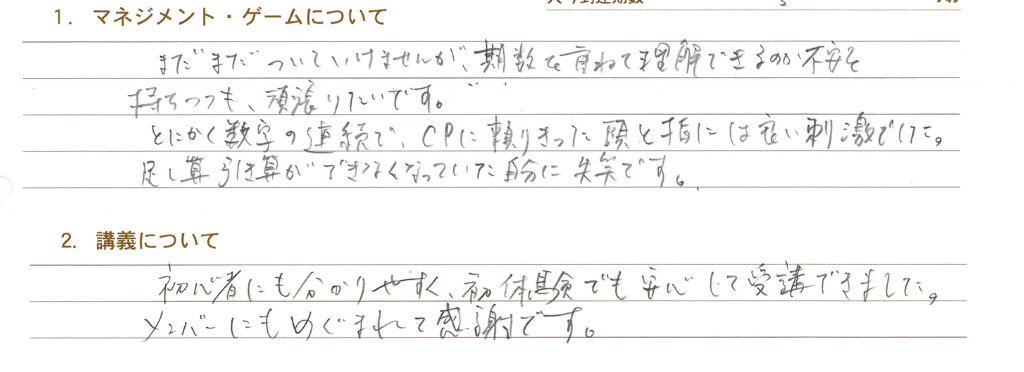 1. マネジメント・ゲームについて
まだまだついていけませんが、期数を重ねて理解できるのか不安を
持ちつつも、頑張りたいです。
とにかく数字の連続で、CPに頼りきった頭と指には良い刺激でした。
足し算引き算ができなくなっていた自分に失笑です。
2. 講義について
初心者にも分かりやすく、初体験でも安心して受講できました。
メンバーにもめぐまれて感謝です。